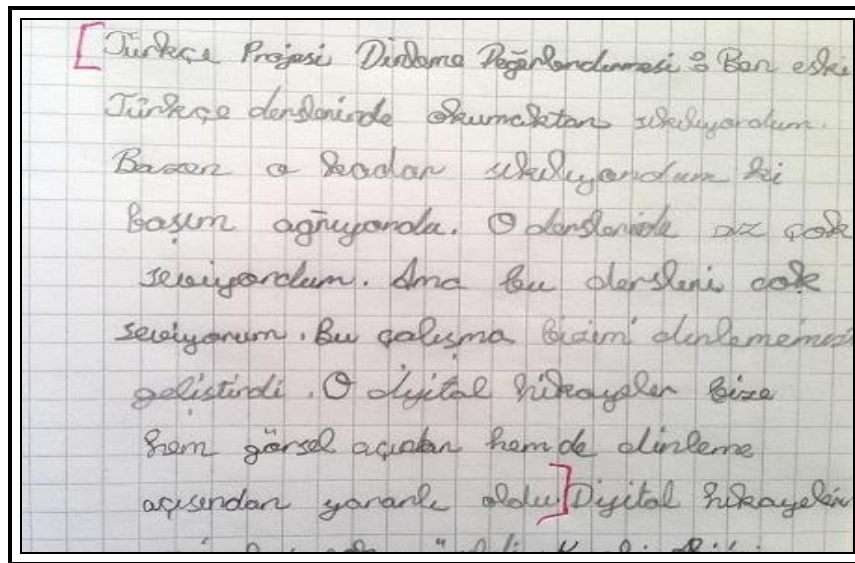 [Türkçe Projesi Dinleme Değerlendirmesi : Ben eski
Türkçe derslerinde okumaktan sıkılıyordum.
Bazen o kadar sıkılıyordum ki
başım ağrıyordu. O dersleride az çok
seviyordum. Ama bu dersleri çok
seviyorum. Bu çalışma bizim dinlememizi
geliştirdi. O dijital hikayeler bize
hem görsel açıdan hem de dinleme
açısından yararlı oldu.] Dijital hikayeler